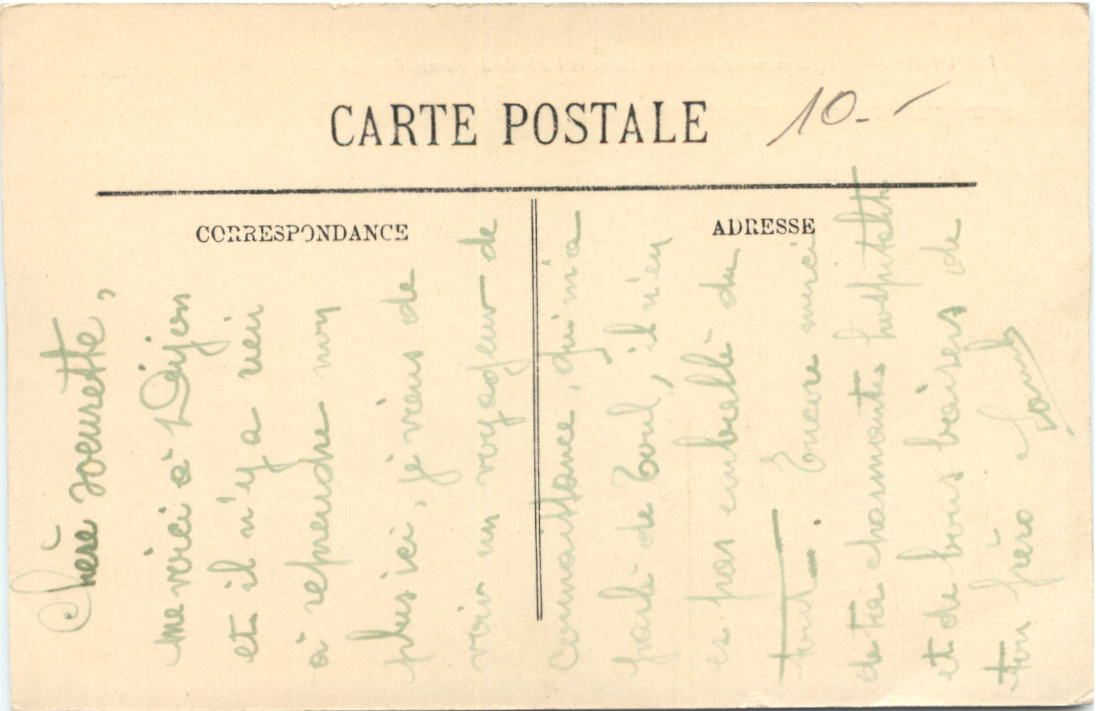 CARTE POSTALE
10.-
CORRESPONDANCE
ADRESSE
Chère soeurette,
me voici à Dijon
et il n'y a rien
à reprendre non
plus ici, je viens de
voir un voyageur de
connaissance, qui m'a
parlé de Toul, il n'en
es pas emballé du
tout. Encore merci
de ta charmante hospitalité
et de bons baisers de
ton frère